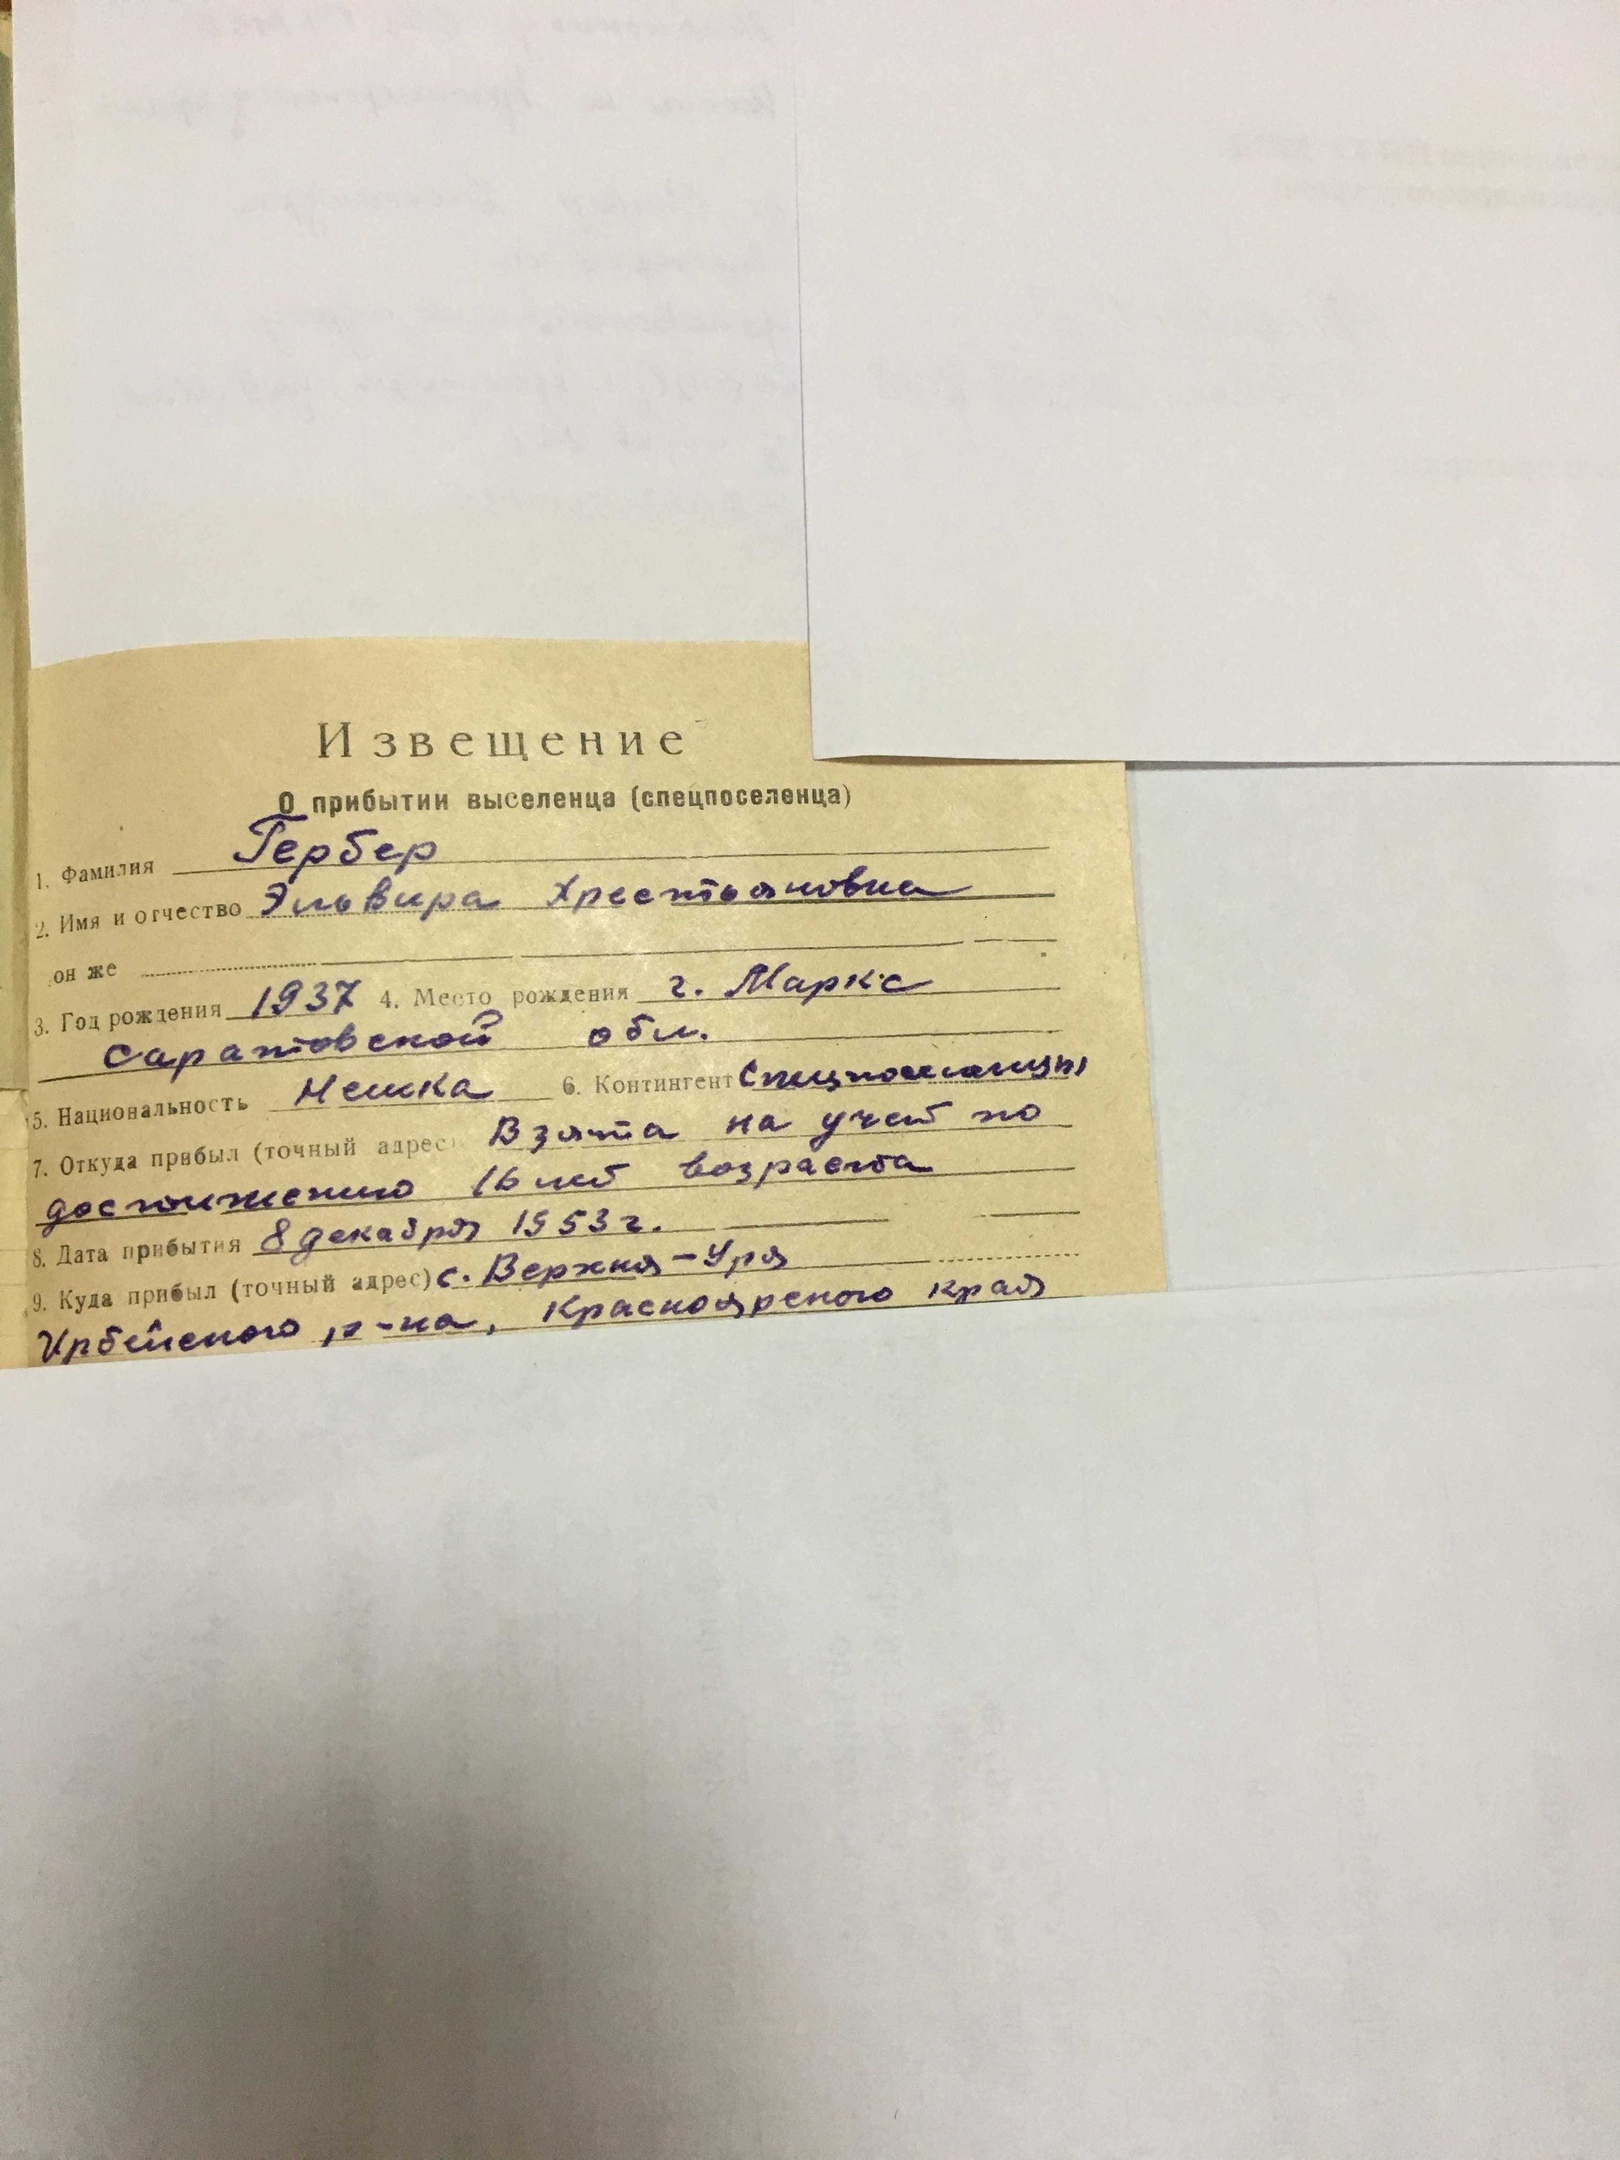 Извещение
О прибытии выселенца (спецпоселенца)
1. Фамилия Гербер
2. Имя и отчество Эльвира Хрестьяновна
он же
3. Год рождения 1937 4. Место рождения г. Маркс
Саратовской обл.
5. Национальность Немка 6. Контингент Спецпоселенцы
7. Откуда прибыл (точный адрес) Взята на учет по
достижению 16 лет возраста
8. Дата прибытия 8 декабря 1953 г.
9. Куда прибыл (точный адрес) с. Верхня-Уря
Ирбейского р-на, Красноярского края